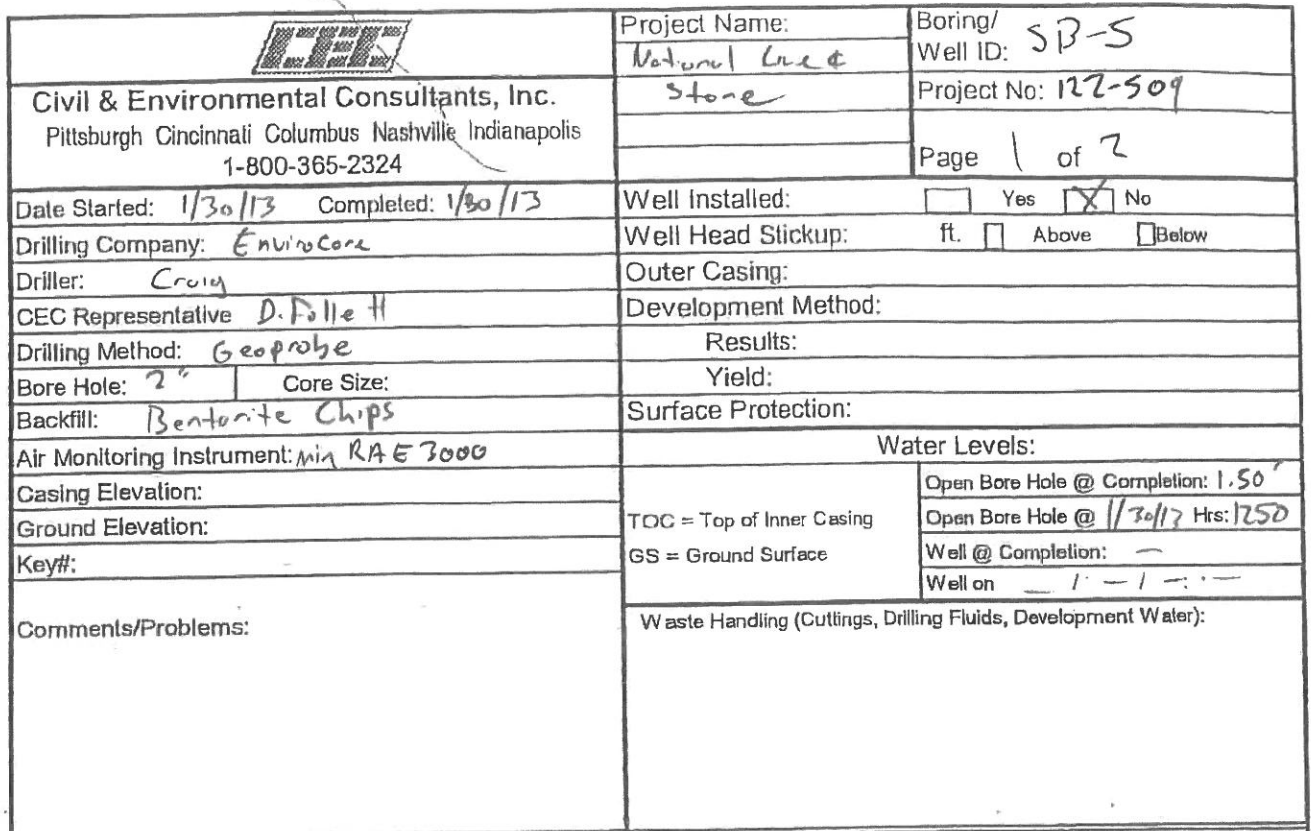 CEC
Civil & Environmental Consultants, Inc.
Pittsburgh Cincinnati Columbus Nashville Indianapolis
1-800-365-2324
Project Name:
National Lime &
Stone
Boring/
Well ID: SB-5
Project No: 122-509
Page 1 of 2
Date Started: 1/30/13 Completed: 1/30/13
Drilling Company: EnviroCore
Driller: Craig
CEC Representative D. Follett
Drilling Method: Geoprobe
Bore Hole: 2" Core Size:
Backfill: Bentonite Chips
Air Monitoring Instrument: Mini RAE 3000
Casing Elevation:
Ground Elevation:
Key#:
Comments/Problems:
Well Installed: Yes X No
Well Head Stickup: ft. Above Below
Outer Casing:
Development Method:
Results:
Yield:
Surface Protection:
Water Levels:
TOC = Top of Inner Casing
GS = Ground Surface
Open Bore Hole @ Completion: 1.50'
Open Bore Hole @ 1/30/13 Hrs: 1250
Well @ Completion: —
Well on — / — / — : —
Waste Handling (Cuttings, Drilling Fluids, Development Water):